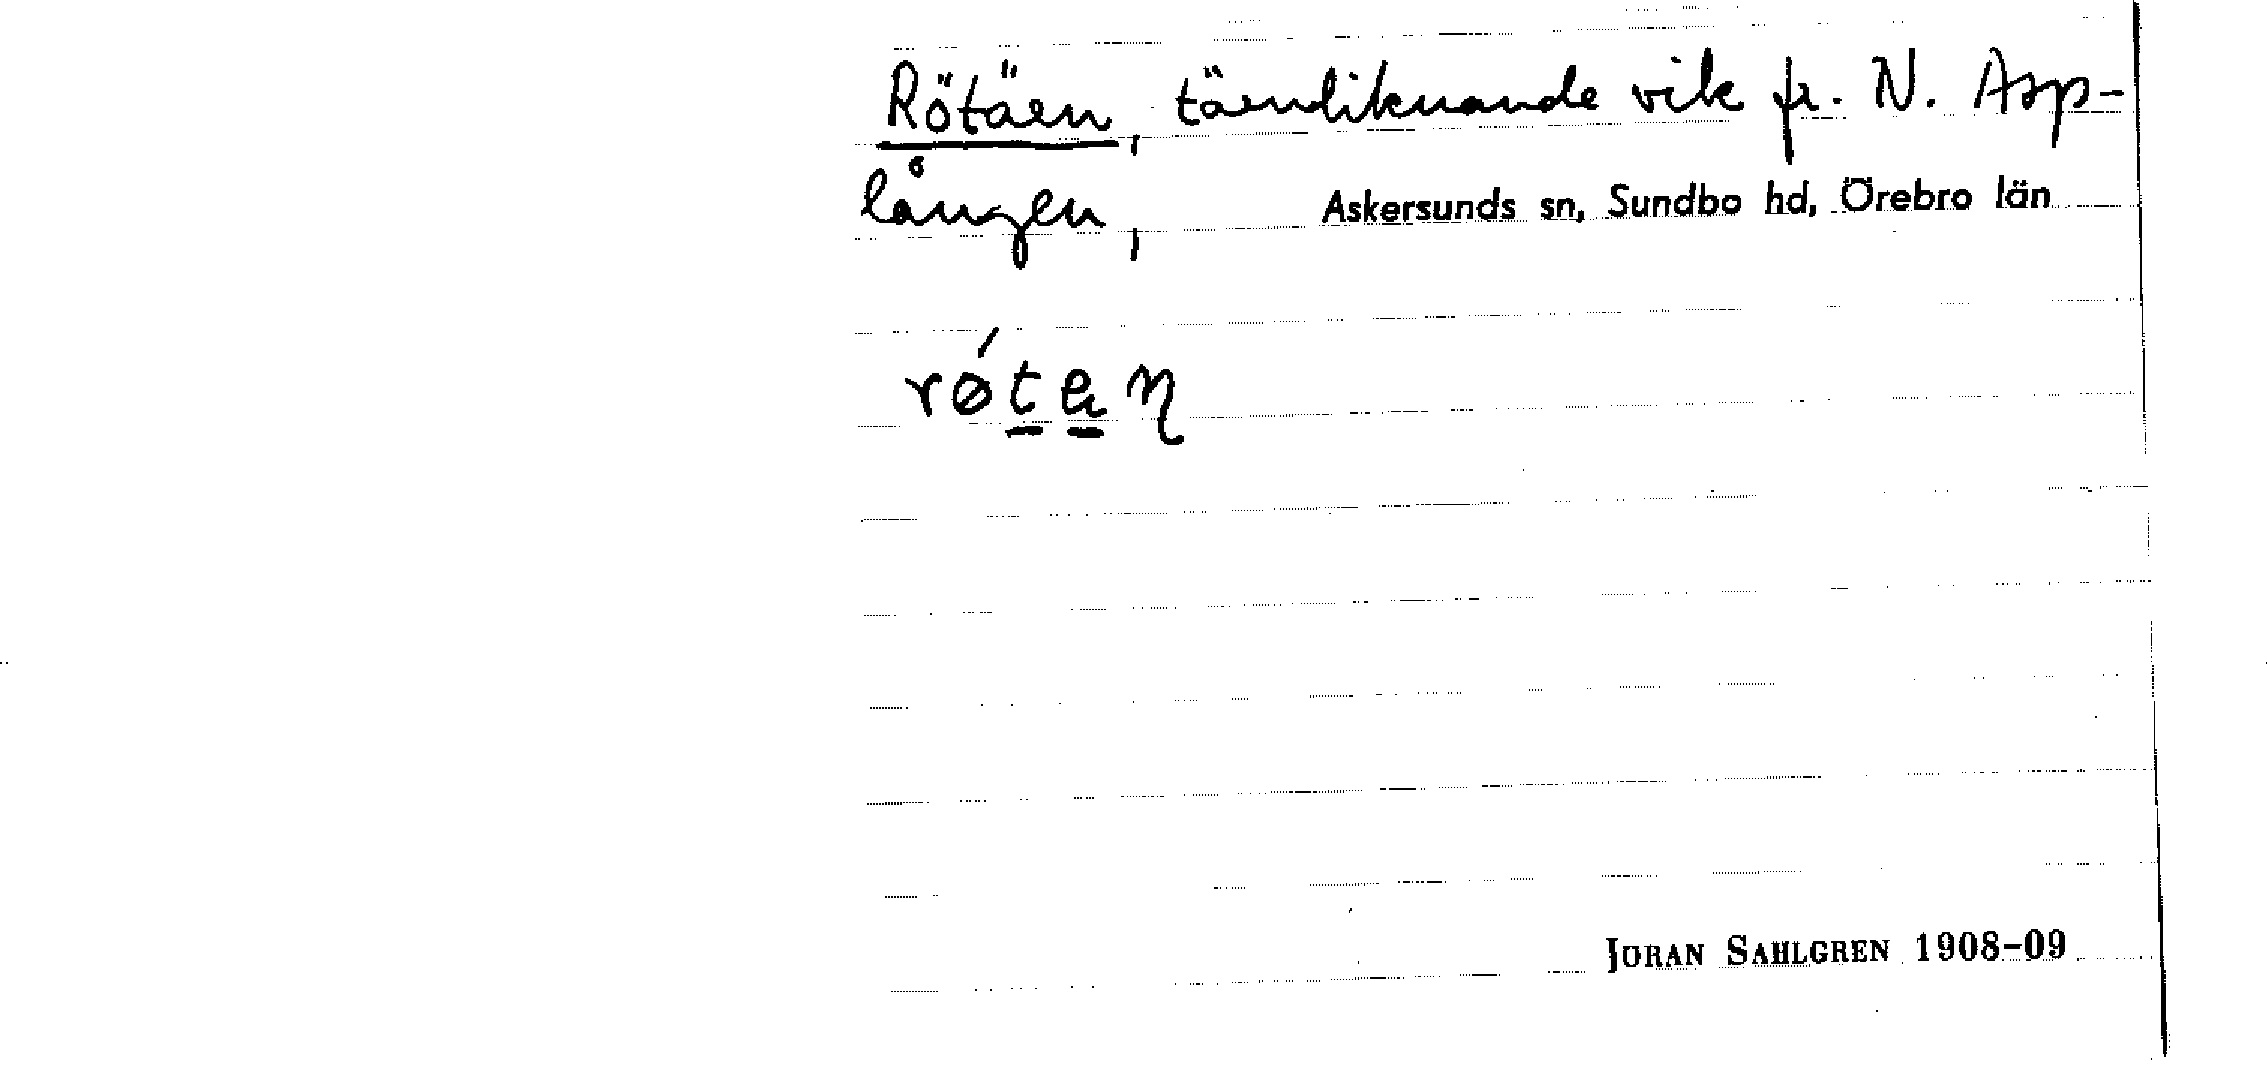 Rötäen, täenliknande vik fr. N. Asp-
lången, Askersunds sn, Sundbo hd, Örebro län
JÖRAN SAHLGREN 1908-09